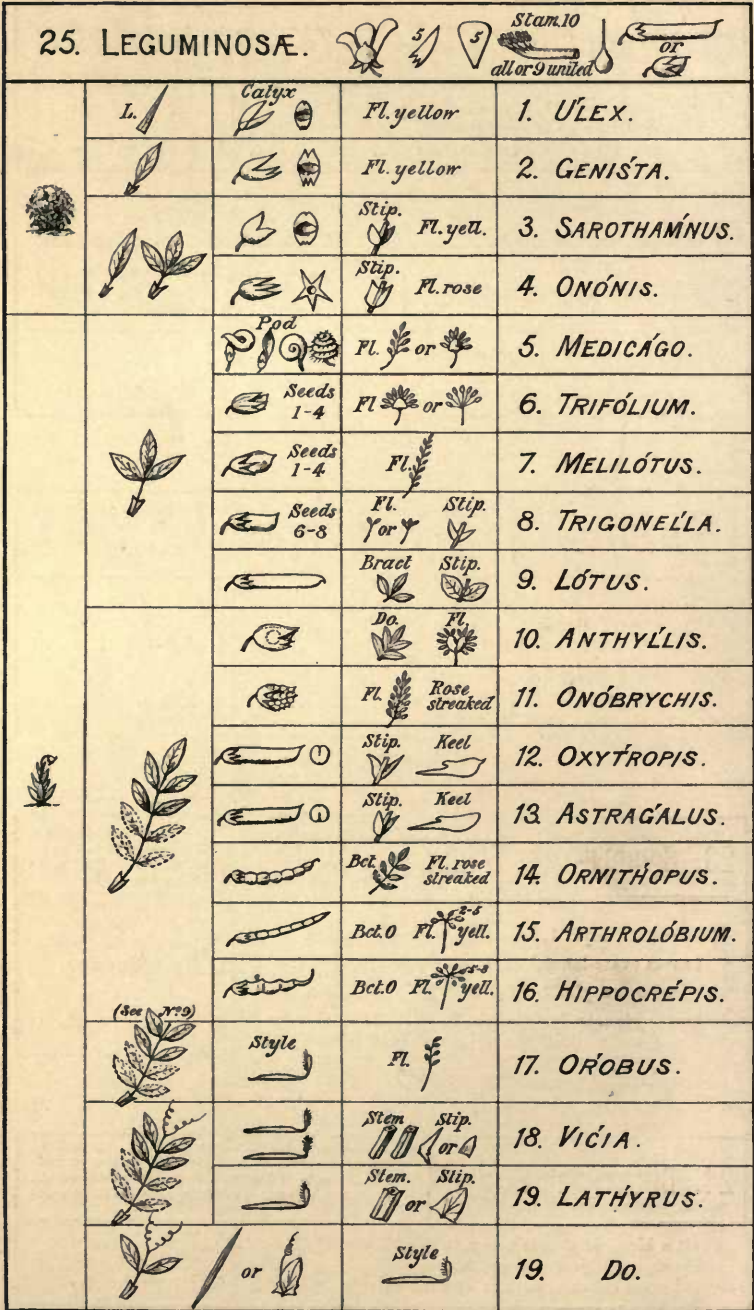 25. LEGUMINOSÆ. 5 5 Stam. 10 all or 9 united or
L. Calyx Fl. yellow 1. ULEX.
Fl. yellow 2. GENIS´TA.
Stip. Fl. yell. 3. SAROTHAM´NUS.
Stip. Fl. rose 4. ONÓNIS.
Pod Fl. or 5. MEDICÁGO.
Seeds 1-4 Fl or 6. TRIFÓLIUM.
Seeds 1-4 Fl. 7. MELILÓTUS.
Seeds 6-8 Fl. or Stip. 8. TRIGONEL´LA.
Bract Stip. 9. LÓTUS.
Do. Fl. 10. ANTHYL´LIS.
Fl. Rose streaked 11. ONÓBRYCHIS.
Stip. Keel 12. OXYT´ROPIS.
Stip. Keel 13. ASTRAG´ALUS.
Bct. Fl. rose streaked 14. ORNITH´OPUS.
Bct. 0 Fl. 2-5 yell. 15. ARTHROLÓBIUM.
Bct. 0 Fl. 5-8 yell. 16. HIPPOCRÉPIS.
(See No. 9) Style Fl. 17. OR´OBUS.
Stem Stip. or 18. VIC´IA.
Stem. or Stip. 19. LATH´YRUS.
or Style 19. Do.